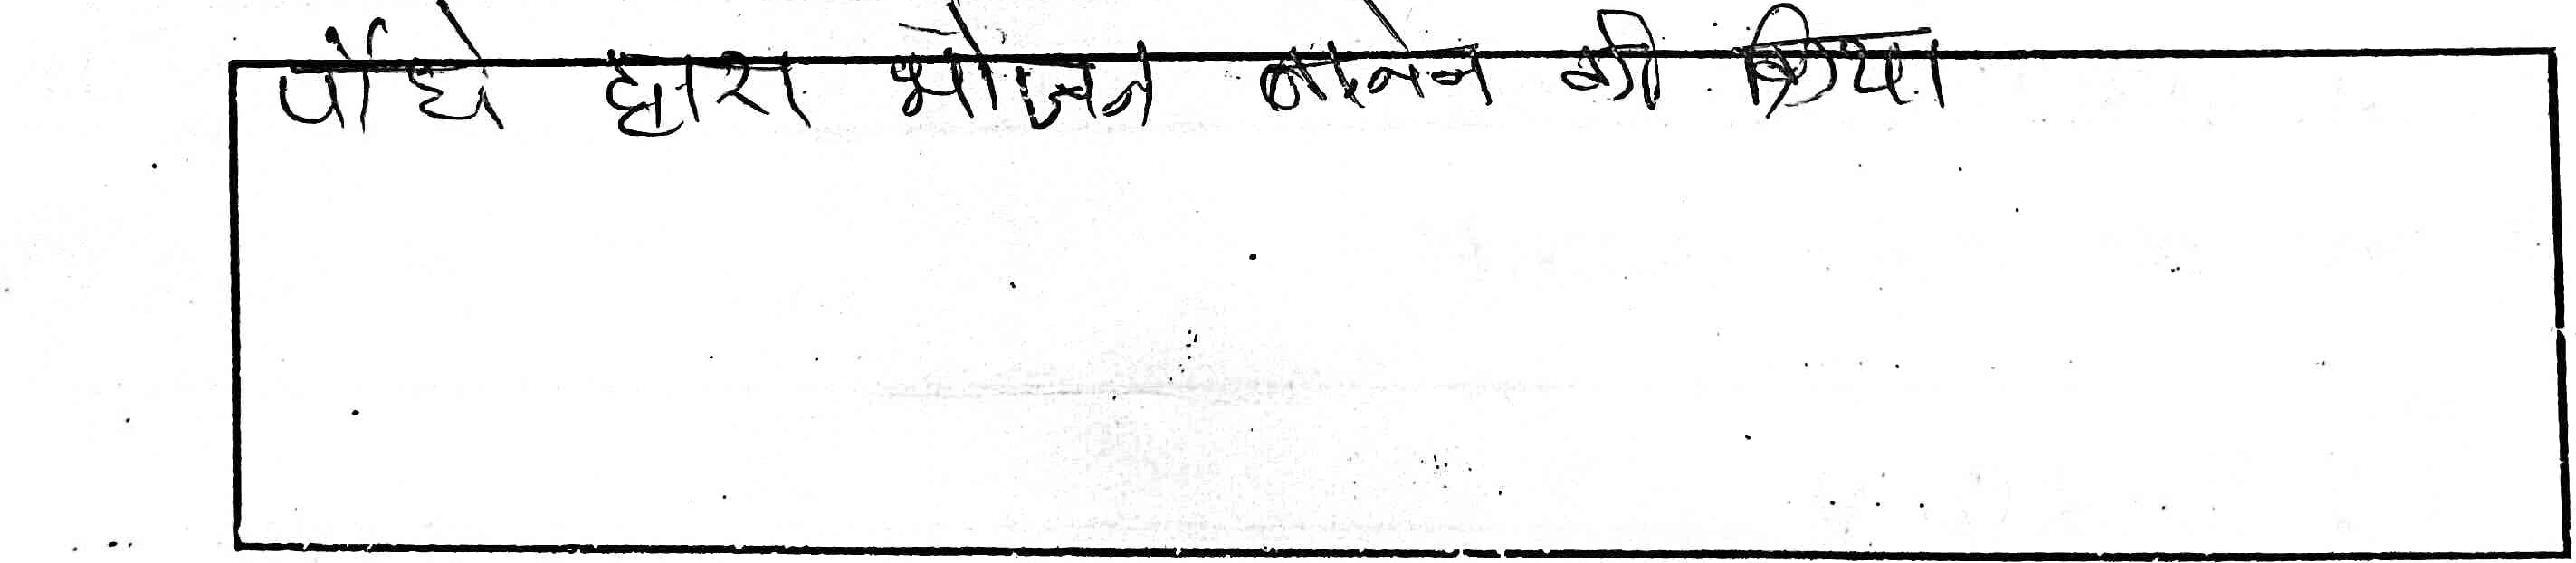 पौधे द्वारा भोजन बनाने की क्रिया